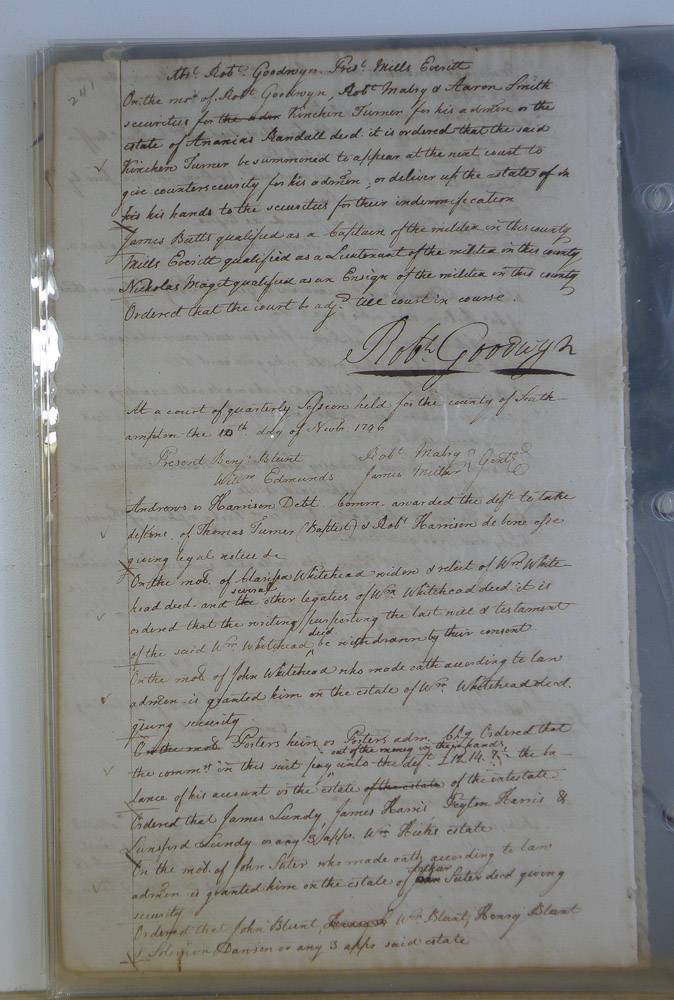 241
Abs.t Rob.t Goodwyn. Pres.t Mills Everitt
On the mo.n of Rob.t Goodwyn, Rob.t Mabry & Aaron Smith
securities for the adm Kinchen Turner for his admōn on the
estate of Ananias Randall decd it is ordered that the said
Kinchen Turner be summoned to appear at the next court to
give countersecurity for his admōn, or deliver up the estate of in
his his hands to the securities for their indemnification
James Butts qualified as a Captain of the militia in this county
Mills Everitt qualified as a Lieutenant of the militia in this county
Nicholas Maget qualified as an Ensign of the militia in this county
Ordered that the court be adj.d till court in course.
Rob.t Goodwyn
At a court of quarterly Session held for the county of South-
ampton the 10th day of Novb. 1796
Present Benj.a Blunt Rob.t Mabry
Will.m Edmunds James Miller Gent.s
Andrews vs Harrison Debt. Comm. awarded the def.t to take
depōns. of Thomas Turner (Baptist) & Rob.t Harrison de bene esse
giving legal notice &c
On the mo.n of Clarissa Whitehead widow & relict of W.m White-
head decd. and the several other legatees of W.m Whitehead decd it is
ordered that the writing purporting the last will & testament
of the said W.m Whitehead decd be withdrawn by their consent
On the mo.n of John Whitehead who made oath according to law
admōn. is granted him on the estate of W.m Whitehead decd.
giving security
On the mo.n Porters heirs vs Porters adm. Ch.y Ordered that
the comm.rs in this suit pay out of the money in their hands unto the def.t £12.14.7½ the ba-
lance of his account vs the estate of the estate of the intestate
Ordered that James Lundy, James Harris Peyton Harris &
Lunsford Lundy or any 3 appr. W.m Hicks estate
On the mo.n of John Suter who made oath according to law
admōn is granted him on the estate of Arthur Suter decd giving
security
Ordered that John Blunt, W.m Blunt, Henry Blunt
& Solomon Dawson or any 3 appr said estate